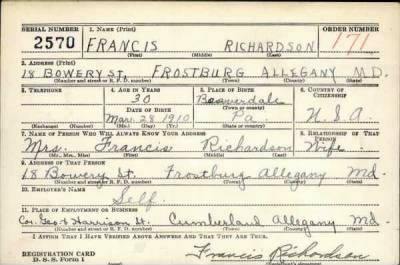 SERIAL NUMBER 1. NAME (Print) ORDER NUMBER
2570 FRANCIS RICHARDSON 171
(First) (Middle) (Last)
2. ADDRESS (Print)
18 BOWERY St. FROSTBURG ALLEGANY MD.
(Number and street or R. F. D. number) (Town) (County) (State)
3. TELEPHONE 4. AGE IN YEARS 5. PLACE OF BIRTH 6. COUNTRY OF CITIZENSHIP
30 Beaverdale
DATE OF BIRTH (Town or county)
Mar. 28 1910 Pa. U.S.A.
(Exchange) (Number) (Mo.) (Day) (Yr.) (State or country)
7. NAME OF PERSON WHO WILL ALWAYS KNOW YOUR ADDRESS 8. RELATIONSHIP OF THAT PERSON
Mrs. Francis Richardson Wife
(Mr., Mrs., Miss) (First) (Middle) (Last)
9. ADDRESS OF THAT PERSON
18 Bowery St. Frostburg Allegany Md.
(Number and street or R. F. D. number) (Town) (County) (State)
10. EMPLOYER'S NAME
Self.
11. PLACE OF EMPLOYMENT OR BUSINESS
Cor. Geo & Harrison St. Cumberland Allegany Md.
(Number and street or R. F. D. number) (Town) (County) (State)
I AFFIRM THAT I HAVE VERIFIED ABOVE ANSWERS AND THAT THEY ARE TRUE.
REGISTRATION CARD
D. S. S. Form 1 Francis Richardson
(Registrant's signature)